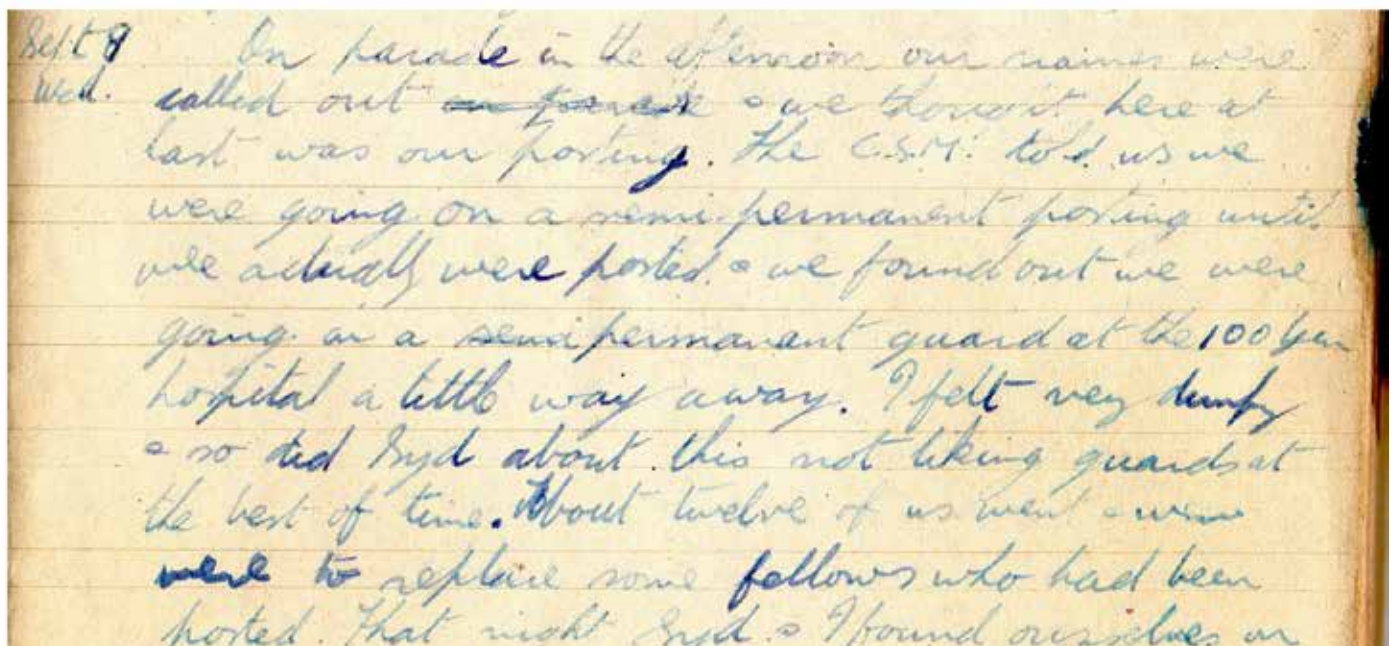 Sept 9 On parade in the afternoon our names were
Wed. called out on parade & we thought here at
last was our posting. The C.S.M. told us we
were going on a semi-permanent posting until
we actually were posted & we found out we were
going on a semi permanant guard at the 100 Gen
hospital a little way away. I felt very dumpy
& so did Syd about this not liking guards at
the best of time. About twelve of us went &
were to replace some fellows who had been
posted. That night Syd & I found ourselves on